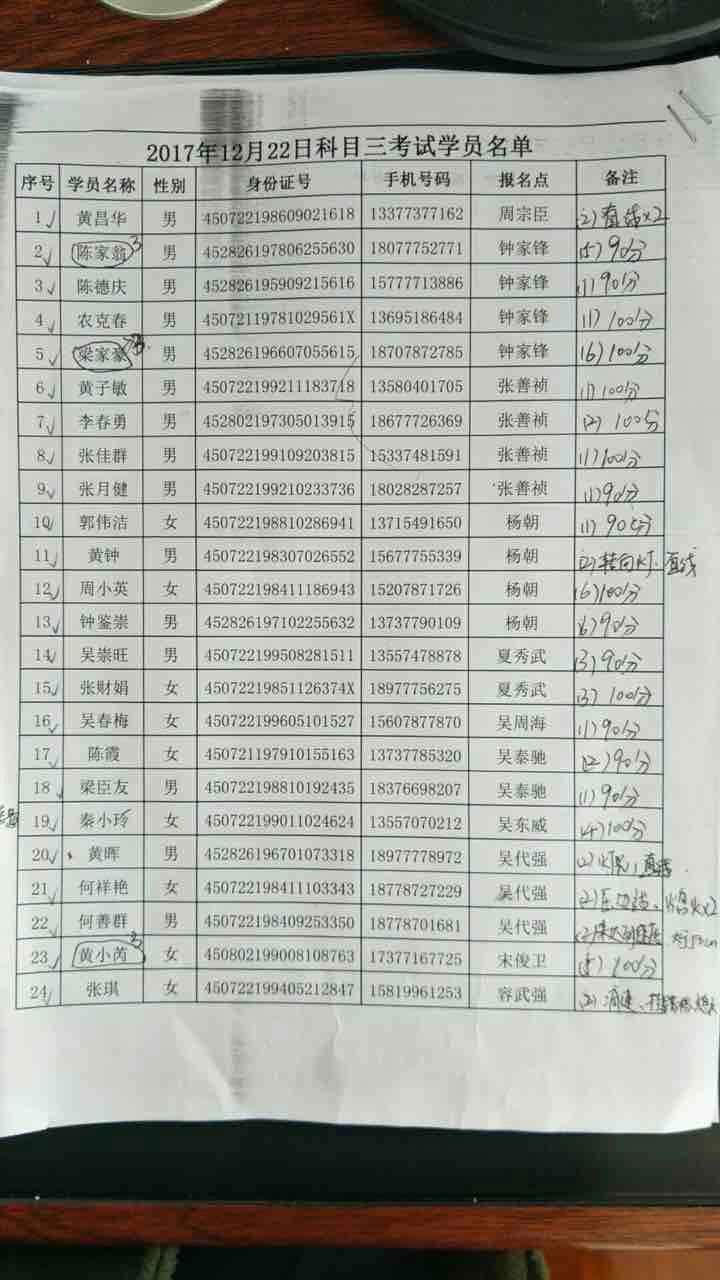 2017年12月22日科目三考试学员名单
序号 学员名称 性别 身份证号 手机号码 报名点 备注
1 黄昌华 男 450722198609021618 13377377162 周宗臣 (2)直线×2
2 陈家翁 3 男 452826197806255630 18077752771 钟家锋 (5)90分
3 陈德庆 男 452826195909215616 15777713886 钟家锋 (1)90分
4 农克春 男 45072119781029561X 13695186484 钟家锋 (1)100分
5 梁家豪 男 452826196607055615 18707872785 钟家锋 (6)100分
6 黄子敏 男 450722199211183718 13580401705 张善祯 (1)100分
7 李春勇 男 452802197305013915 18677726369 张善祯 (2)100分
8 张佳群 男 450722199109203815 15337481591 张善祯 (1)100分
9 张月健 男 450722199210233736 18028287257 张善祯 (1)90分
10 郭伟洁 女 450722198810286941 13715491650 杨朝 (1)90分
11 黄钟 男 450722198307026552 15677755339 杨朝 (2)转向灯、直线
12 周小英 女 450722198411186943 15207871726 杨朝 (6)100分
13 钟鉴崇 男 452826197102255632 13737790109 杨朝 (6)90分
14 吴崇旺 男 450722199508281511 13557478878 夏秀武 (3)90分
15 张财娟 女 45072219851126374X 18977756275 夏秀武 (3)100分
16 吴春梅 女 450722199605101527 15607877870 吴周海 (1)90分
17 陈霞 女 450721197910155163 13737785320 吴泰驰 (2)90分
18 梁臣友 男 450722198810192435 18376698207 吴泰驰 (1)90分
19 秦小玲 女 450722199011024624 13557070212 吴东威 (4)100分
20 黄晖 男 452826196701073318 18977778972 吴代强 (2)灯光,直线
21 何祥艳 女 450722198411103343 18778727229 吴代强 (2)压边线、×2
22 何善群 男 450722198409253350 18778701681 吴代强
23 黄小芮 3 女 450802199008108763 17377167725 宋俊卫 (5)100分
24 张琪 女 450722199405212847 15819961253 容武强 (2)